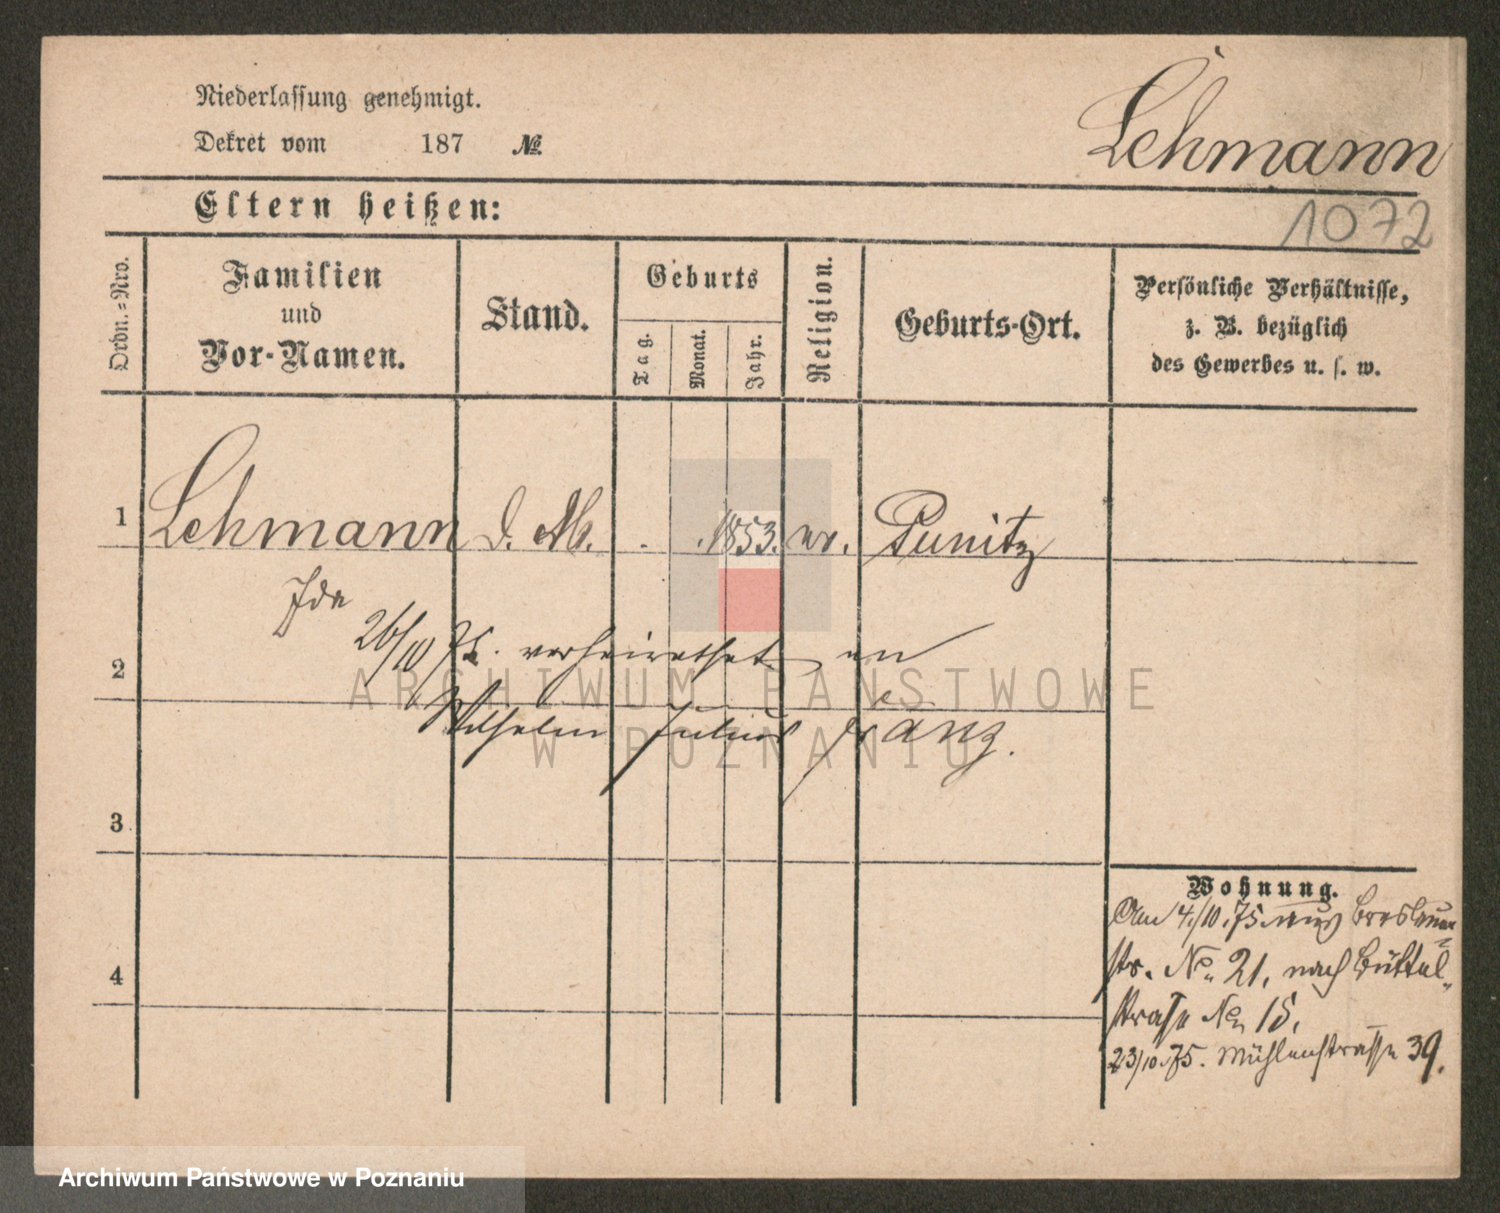 Niederlassung genehmigt.
Dekret vom 187 №
Lehmann
1072
Eltern heißen:
Ordn.-Nro.
Familien
und
Vor-Namen.
Stand.
Geburts
Tag.
Monat.
Jahr.
Religion.
Geburts-Ort.
Persönliche Verhältnisse,
z. B. bezüglich
des Gewerbes u. s. w.
1 Lehmann d. M. . . 1853. ev. Punitz
Ida
26/10 75. verheirathet an
2
Wilhelm Julius Franz.
3
4
Wohnung.
Am 4/10.75 aus Breslauer
str. No. 21. nach Büttel-
straße No. 15.
23/10.75. Mühlenstrasse 39.
ARCHIWUM PAŃSTWOWE
W POZNANIU
Archiwum Państwowe w Poznaniu